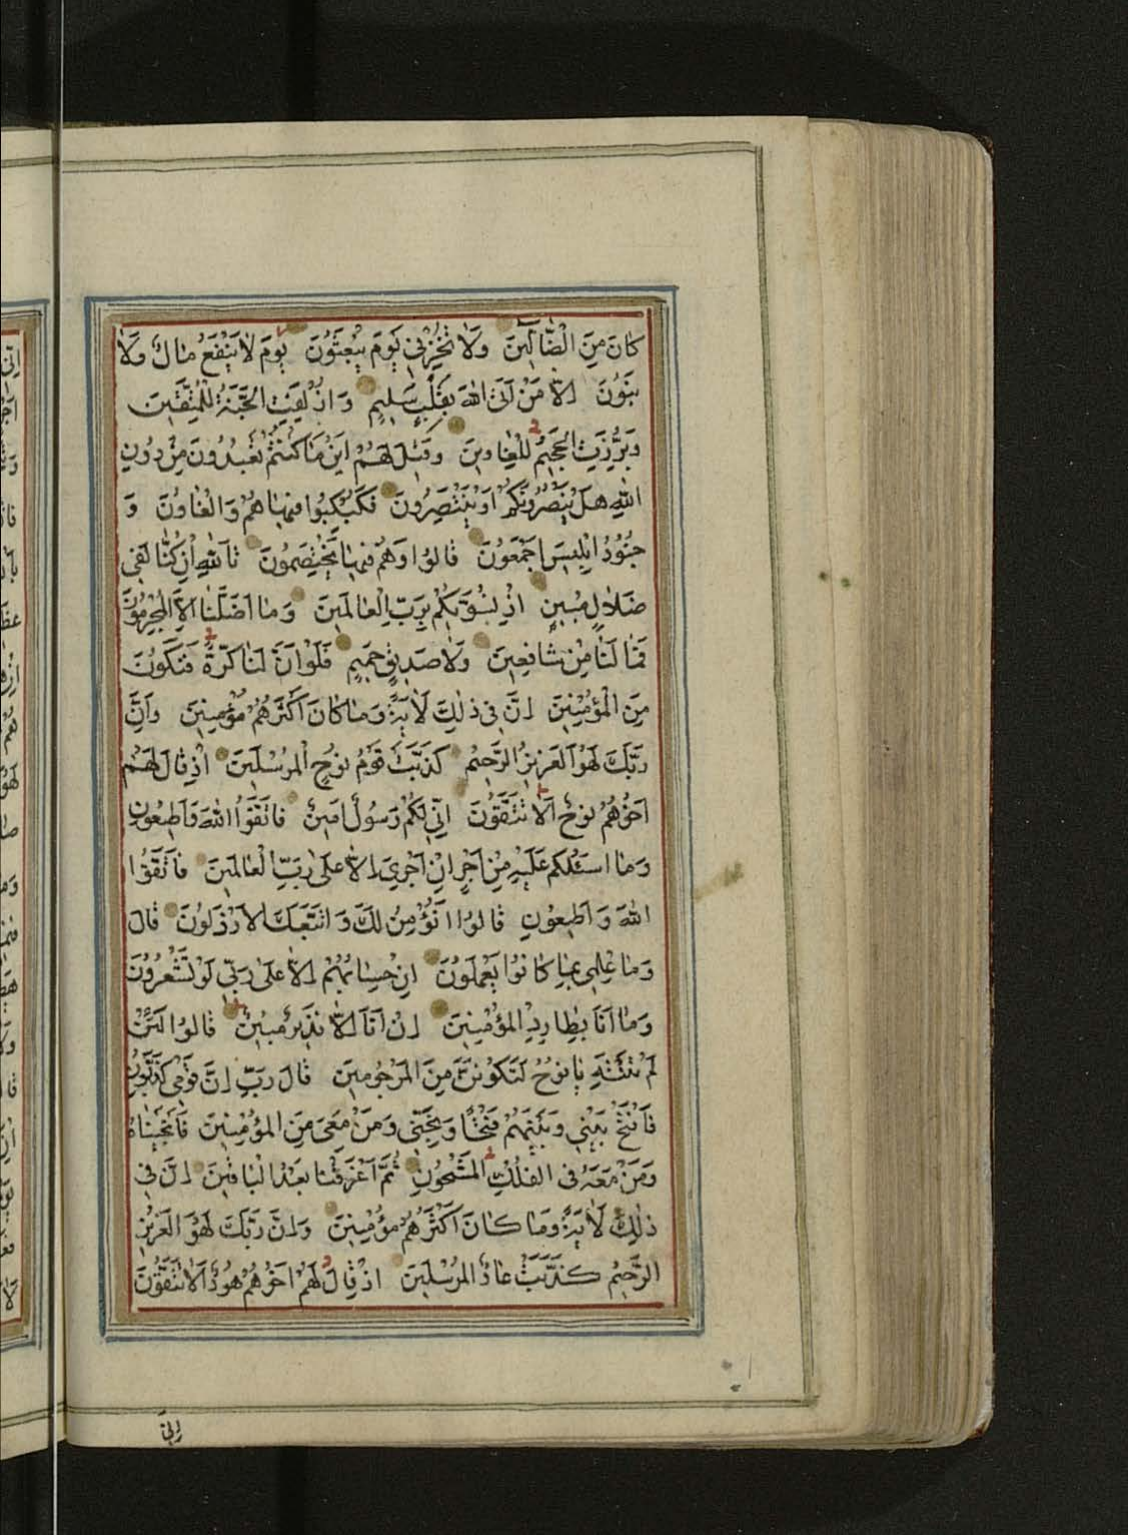 كَانَ مِنَ الضَّالِّينَ وَلَا تُخْزِنِي يَوْمَ يُبْعَثُونَ يَوْمَ لَا يَنْفَعُ مَالٌ وَلَا
بَنُونَ اِلَّا مَنْ اَتَى اللّٰهَ بِقَلْبٍ سَلِيمٍ وَاُزْلِفَتِ الْجَنَّةُ لِلْمُتَّقِينَ
وَبُرِّزَتِ الْجَحِيمُ لِلْغَاوِينَ وَقِيلَ لَهُمْ اَيْنَ مَا كُنْتُمْ تَعْبُدُونَ مِنْ دُونِ
اللّٰهِ هَلْ يَنْصُرُونَكُمْ اَوْ يَنْتَصِرُونَ فَكُبْكِبُوا فِيهَا هُمْ وَالْغَاوُنَ وَ
جُنُودُ اِبْلِيسَ اَجْمَعُونَ قَالُوا وَهُمْ فِيهَا يَخْتَصِمُونَ تَاللّٰهِ اِنْ كُنَّا لَفِي
ضَلَالٍ مُبِينٍ اِذْ نُسَوِّيكُمْ بِرَبِّ الْعَالَمِينَ وَمَا اَضَلَّنَا اِلَّا الْمُجْرِمُونَ
فَمَا لَنَا مِنْ شَافِعِينَ وَلَا صَدِيقٍ حَمِيمٍ فَلَوْ اَنَّ لَنَا كَرَّةً فَنَكُونَ
مِنَ الْمُؤْمِنِينَ اِنَّ فِي ذٰلِكَ لَاٰيَةً وَمَا كَانَ اَكْثَرُهُمْ مُؤْمِنِينَ وَاِنَّ
رَبَّكَ لَهُوَ الْعَزِيزُ الرَّحِيمُ كَذَّبَتْ قَوْمُ نُوحٍ الْمُرْسَلِينَ اِذْ قَالَ لَهُمْ
اَخُوهُمْ نُوحٌ اَلَا تَتَّقُونَ اِنِّي لَكُمْ رَسُولٌ اَمِينٌ فَاتَّقُوا اللّٰهَ وَاَطِيعُونِ
وَمَا اَسْـَٔلُكُمْ عَلَيْهِ مِنْ اَجْرٍ اِنْ اَجْرِيَ اِلَّا عَلٰى رَبِّ الْعَالَمِينَ فَاتَّقُوا
اللّٰهَ وَاَطِيعُونِ قَالُوا اَنُؤْمِنُ لَكَ وَاتَّبَعَكَ الْاَرْذَلُونَ قَالَ
وَمَا عِلْمِي بِمَا كَانُوا يَعْمَلُونَ اِنْ حِسَابُهُمْ اِلَّا عَلٰى رَبِّي لَوْ تَشْعُرُونَ
وَمَا اَنَا بِطَارِدِ الْمُؤْمِنِينَ اِنْ اَنَا اِلَّا نَذِيرٌ مُبِينٌ قَالُوا لَئِنْ
لَمْ تَنْتَهِ يَا نُوحُ لَتَكُونَنَّ مِنَ الْمَرْجُومِينَ قَالَ رَبِّ اِنَّ قَوْمِي كَذَّبُونِ
فَافْتَحْ بَيْنِي وَبَيْنَهُمْ فَتْحًا وَنَجِّنِي وَمَنْ مَعِيَ مِنَ الْمُؤْمِنِينَ فَاَنْجَيْنَاهُ
وَمَنْ مَعَهُ فِي الْفُلْكِ الْمَشْحُونِ ثُمَّ اَغْرَقْنَا بَعْدُ الْبَاقِينَ اِنَّ فِي
ذٰلِكَ لَاٰيَةً وَمَا كَانَ اَكْثَرُهُمْ مُؤْمِنِينَ وَاِنَّ رَبَّكَ لَهُوَ الْعَزِيزُ
الرَّحِيمُ كَذَّبَتْ عَادٌ الْمُرْسَلِينَ اِذْ قَالَ لَهُمْ اَخُوهُمْ هُودٌ اَلَا تَتَّقُونَ
اِنِّي